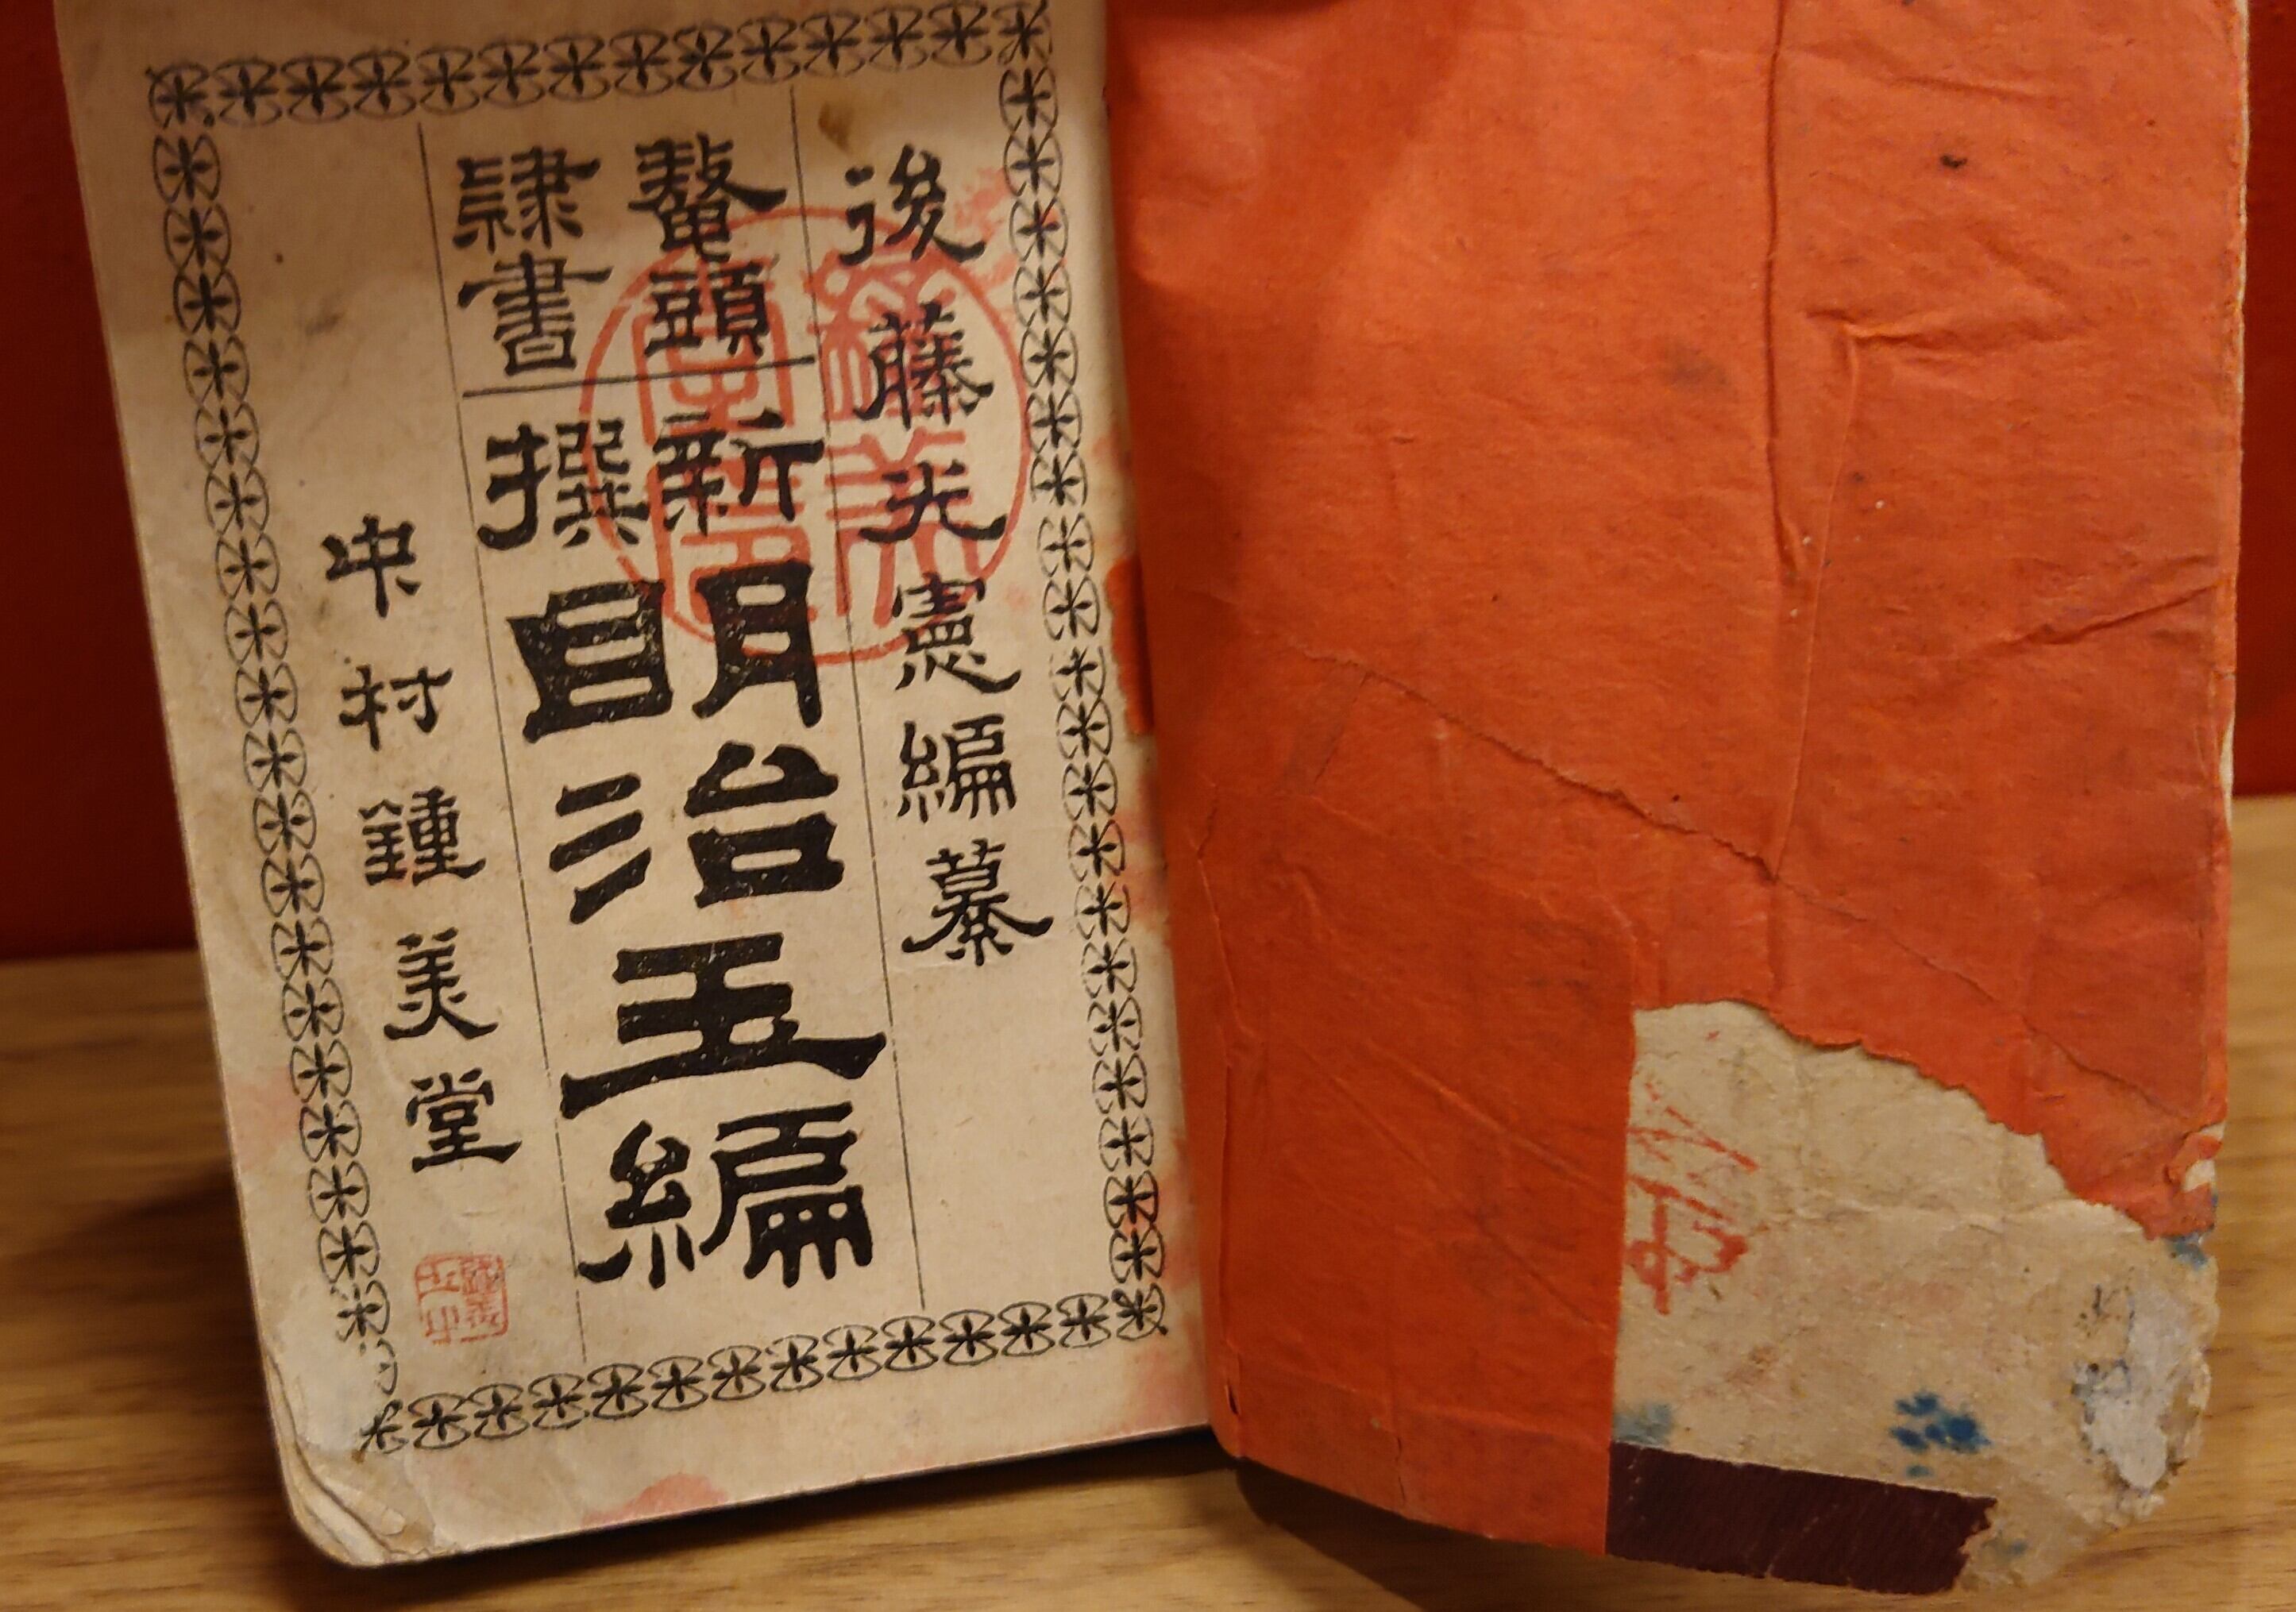 後藤光憲編纂
鼇頭
隷書
新撰
明治玉編
中村鍾美堂